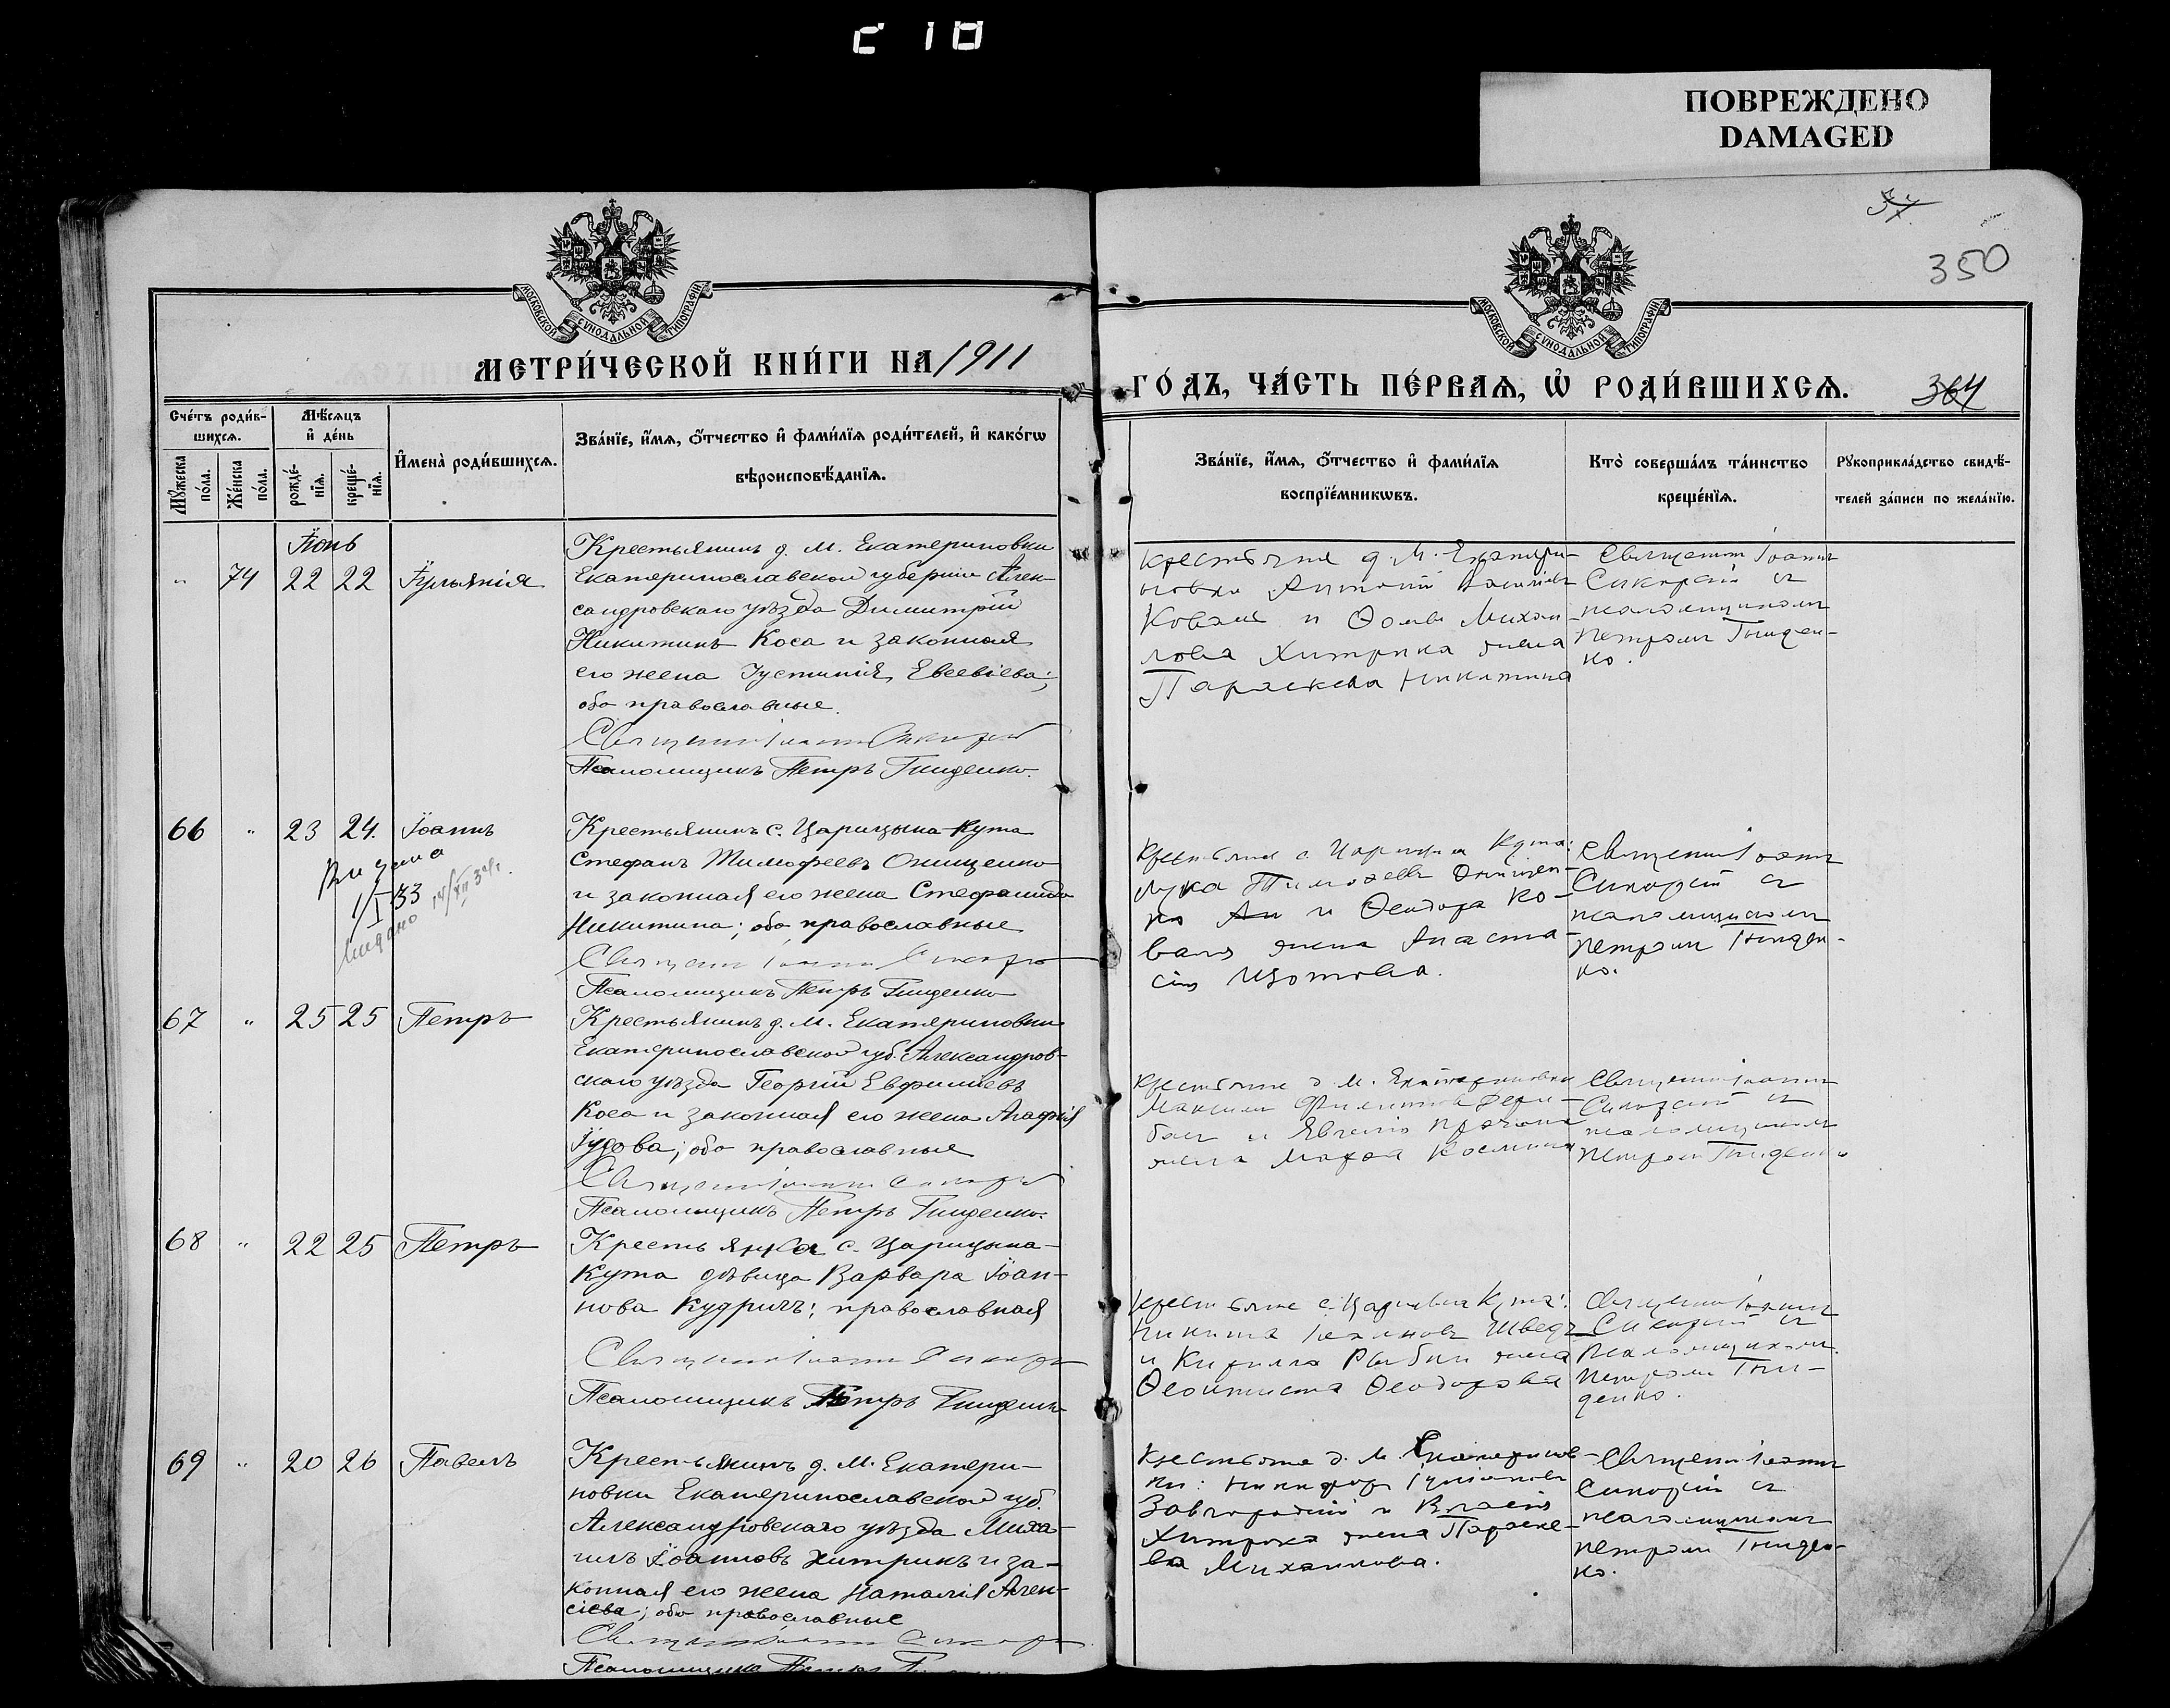 210
ПОВРЕЖДЕНО
DAMAGED
350
МОСКОВСКОЙ СѴНОДАЛЬНОЙ ТИПОГРАФІИ
МОСКОВСКОЙ СѴНОДАЛЬНОЙ ТИПОГРАФІИ
МЕТРИ́ЧЕСКОЙ КНИ́ГИ НА 1911
ГО́ДЪ, ЧА́СТЬ ПЕ́РВАѦ, Ѡ҆ РОДИ́ВШИХСѦ.
364
Сче́тъ роди́в-
шихсѧ.
Мѣ́сѧцъ
и҆ де́нь
И҆мена̀ роди́вшихсѧ.
Зва́нїе, и҆́мѧ, ѻ҆́тчество и҆ фами́лїѧ роди́телей, и҆ како́гѡ
вѣроисповѣ́данїѧ.
Мꙋ́жеска
по́ла.
Же́нска
по́ла.
рожде́-
нїѧ.
креще́-
нїѧ.
Зва́нїе, и҆́мѧ, ѻ҆́тчество и҆ фами́лїѧ
воспрїе́мникѡвъ.
Кто̀ соверша́лъ та́инство
креще́нїѧ.
Рꙋкоприкла́дство свидѣ́-
телей за́писи по жела́нїю.
Іюнь
" 74 22 22 Іуліанія
Крестьянинъ д. М. Екатериновки
Екатеринославской губерніи Алек-
сандровскаго уѣзда Димитрій
Никитинъ Коса и законная
его жена Іустинія Евсевіева;
оба православные.
Священникъ Іоаннъ Сикорскій
Псаломщикъ Петръ Гниденко.
Крестьяне д. М. Екатери-
новки Антоній
Коваль и Ѳомы Михаи-
лова Хитрика жена
Параскева Никитина
Священникъ Іоаннъ
Сикорскій съ
псаломщикомъ
Петромъ Гниден-
ко.
66 " 23 24. Іоаннъ
Выдана
1/I 33
Видано 14/XII 34г.
Крестьянинъ с. Царицына-Кута
Стефанъ Тимофеевъ Онищенко
и законная его жена Стефанида
Никитина; оба православные
Священникъ Іоаннъ Сикорскій
Псаломщикъ Петръ Гниденко
Крестьяне с. Царицына Кута:
Лука Тимофеевъ Онищен-
ко и Ѳеодора Ко-
валя жена Анаста-
сія Изотова.
Священникъ Іоаннъ
Сикорскій съ
псаломщикомъ
Петромъ Гниден-
ко.
67 " 25 25 Петръ
Крестьянинъ д. М. Екатериновки
Екатеринославской губ. Александров-
скаго уѣзда Георгій Евфиміевъ
Коса и законная его жена Агафія
Іудова; оба православные
Священникъ Іоаннъ Сикорскій
Псаломщикъ Петръ Гниденко.
Крестьяне д. М. Екатериновки
Максимъ Филиповъ
жена Марфа Космина
Священникъ Іоаннъ
Сикорскій съ
псаломщикомъ
Петромъ Гниденко
68 " 22 25 Петръ
Крестьянка с. Царицына-
Кута дѣвица Варвара Іоан-
нова Кудричъ; православная
Священникъ Іоаннъ Сикорскій
Псаломщикъ Петръ Гниденко
Крестьяне с. Царицына Кута:
Никита Іоанновъ Шведъ
и Кирилла Рыбки жена
Ѳеоктиста Ѳеодорова
Священникъ Іоаннъ
Сикорскій съ
псаломщикомъ
Петромъ Гни-
денко.
69 " 20 26 Павелъ
Крестьянинъ д. М. Екатери-
новки Екатеринославской губ.
Александровскаго уѣзда Миха-
илъ Іоанновъ Хитрикъ и за-
конная его жена Наталія Алек-
сіева; оба православные
Священникъ Іоаннъ Сикорскій
Псаломщикъ Петръ
Крестьяне д. М. Екатеринов-
ки: Никифоръ
Завгородній и Власія
Хитрика жена Параске-
ва Михаилова.
Священникъ Іоаннъ
Сикорскій съ
псаломщикомъ
Петромъ Гниден-
ко.